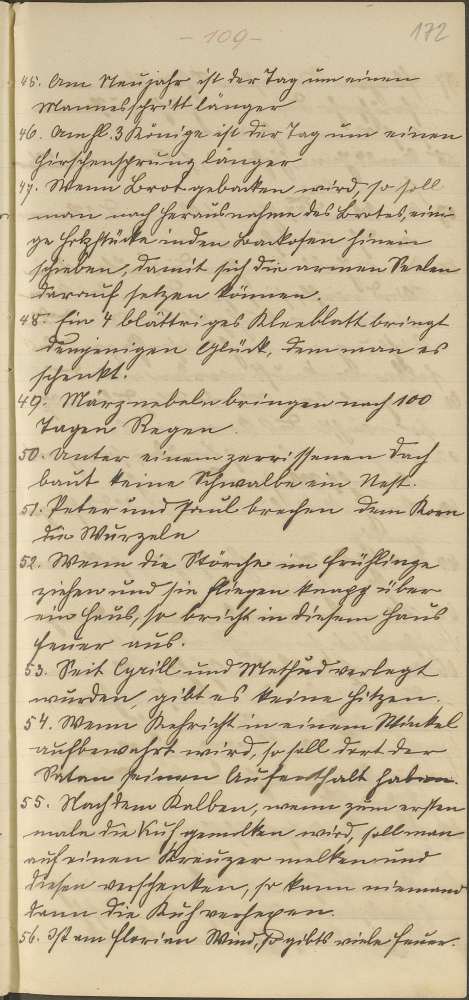 - 109 -
172
45. Am Neujahr ist der Tag um einen
Mannesschritt länger
46. Am hl. 3 Könige ist der Tag um einen
Hirschensprung länger
47. Wenn Brot gebacken wird, so soll
man nach Herausnahme des Brotes, eini
ge Holzstücke in den Backofen hinein
schieben, damit sich die armen Seelen
darauf setzen können.
48. Ein 4 blättriges Kleeblatt bringt
demjenigen Glück, dem man es
schenkt.
49. Märznebeln bringen nach 100
Tagen Regen.
50. Unter einem zerrissenen Dach
baut keine Schwalbe ein Nest.
51. Peter und Paul brechen dem Korn
die Wurzeln
52. Wenn die Störche im Frühlinge
ziehen und sie fliegen knapp über
ein Haus, so bricht in diesem Haus
Feuer aus.
53. Seit Cyrill und Method verlegt
wurden, gibt es keine Hitzen.
54. Wenn Kehricht in einem Winkel
aufbewahrt wird, so soll dort der
Satan seinen Aufenthalt haben.
55. Nach dem Kalben, wenn zum ersten
male die Kuh gemolken wird, soll man
auf einen Kreuzer melken und
diesen verschenken, so kann niemand
dann die Kuh verhexen.
56. Ist am Florian Wind, so gibts viele Feuer.